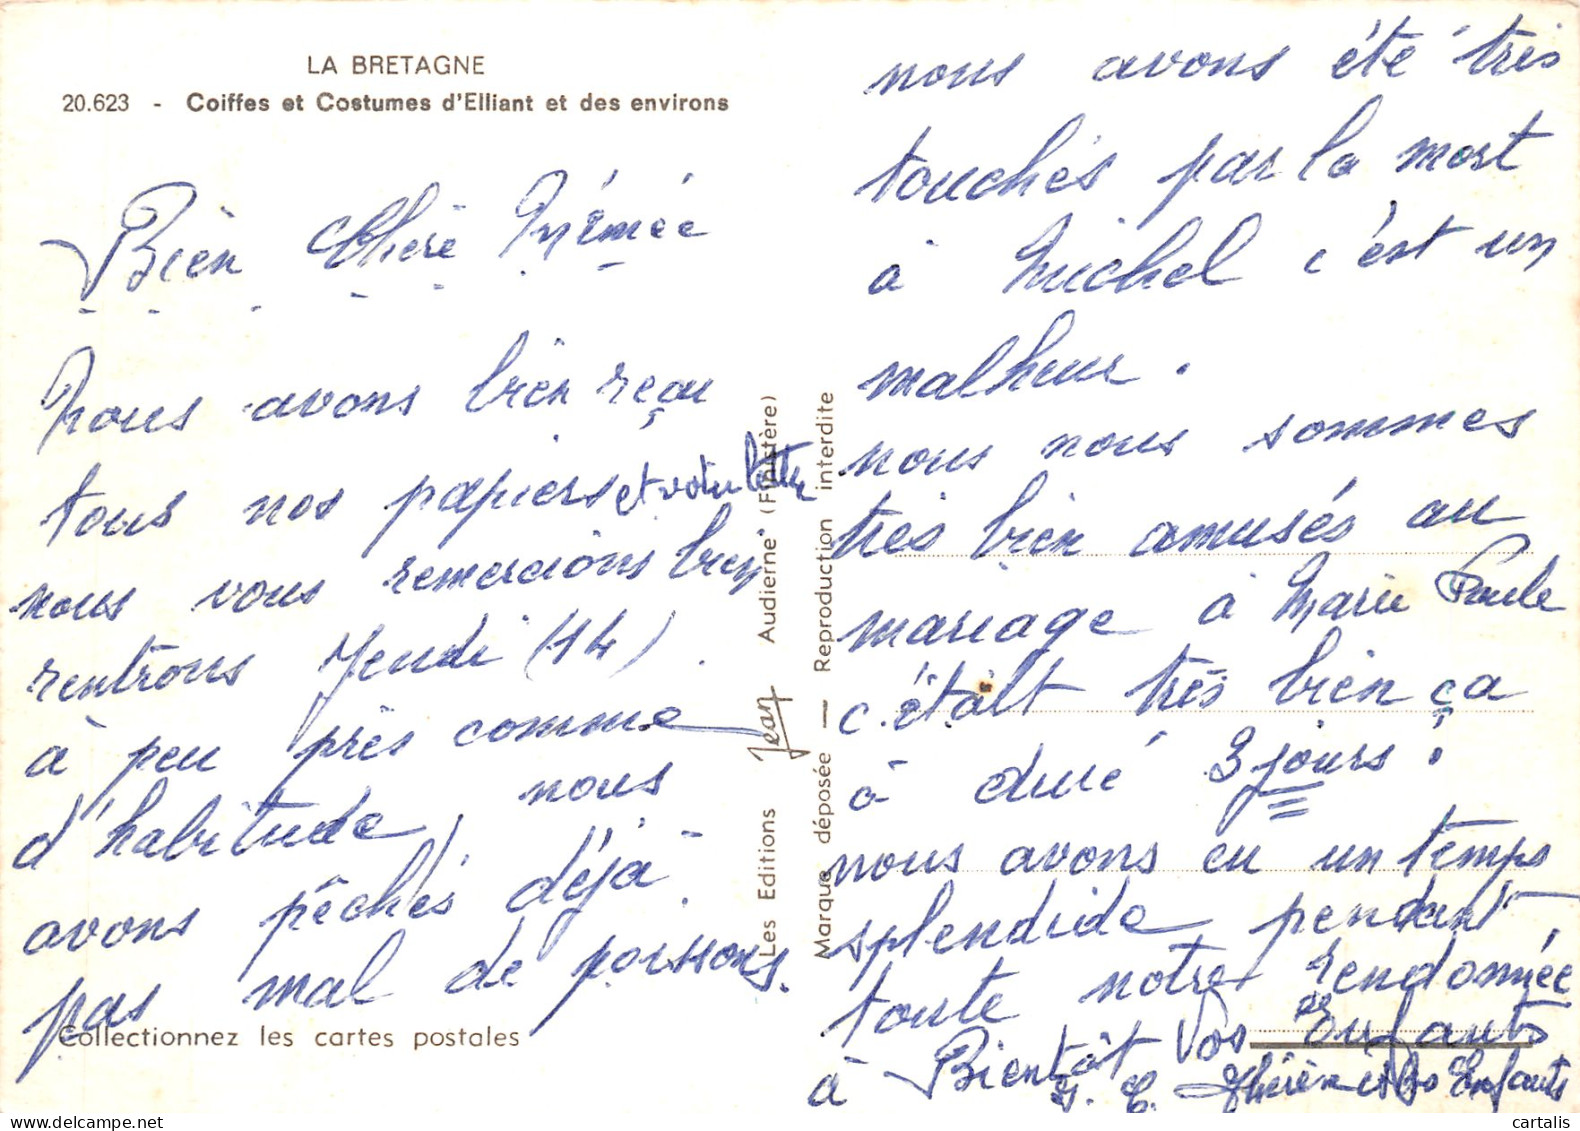 LA BRETAGNE
20.623 - Coiffes et Costumes d'Elliant et des environs
Bien Chère Mémée
Nous avons bien reçu
tous nos papiers et votre lettre
nous vous remercions bien
rentrons Jeudi (14).
à peu près comme
d'habitude, nous
avons pêchés déjà
pas mal de poissons.
Collectionnez les cartes postales
Les Editions Jean Audierne (Finistère)
Marque déposée — Reproduction interdite
nous avons été très
touchés par la mort
à Michel c'est un
malheur.
nous nous sommes
très bien amusés au
mariage à Marie Paule
c'était très bien ça
à duré 3 jours !
nous avons eu un temps
splendide pendant
toute notre rendonnée
à Bientôt Vos Enfants
Enfants
cartalis